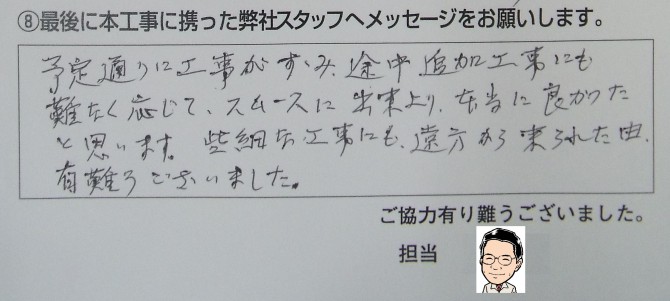 ⑧最後に本工事に携った弊社スタッフへメッセージをお願いします。
予定通りに工事がすすみ、途中、追加工事にも
難なく応じて、スムースに出来上り、本当に良かった
と思います。些細な工事にも、遠方から来られた由、
有難うございました。
ご協力有り難うございました。
担当